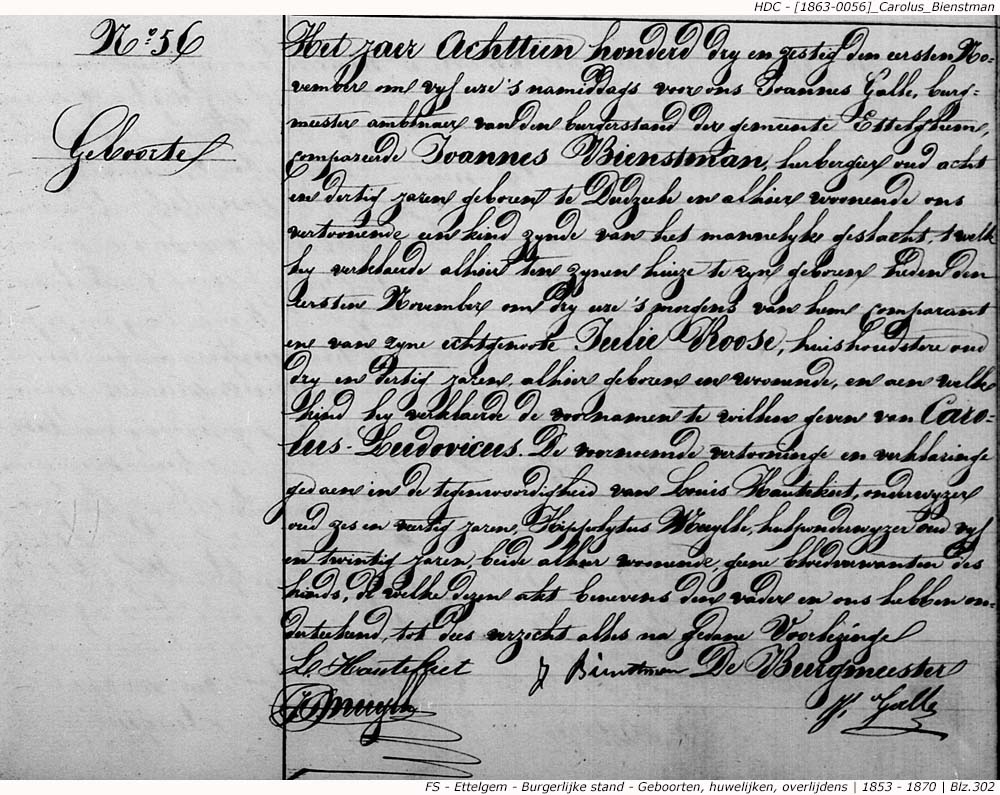 HDC - [1863-0056]_Carolus_Bienstman
N.º 56
Geboorte
Het jaer Achttien honderd dry en zestig den eersten No-
vember om vyf ure 's namiddags voor ons Joannes Galle, burg-
meester ambtenaer van den burgerstand der gemeente Ettelghem,
compareerde Joannes Bienstman, herbergier oud acht
en dertig jaren geboren te Dudzeele en alhier woonende ons
vertoonende een kind zynde van het mannelyke geslacht, t welk
hy verklaerde alhier ten zynen huize te zyn geboren heden den
eersten November om dry ure 's morgens van hem comparant
en van zyne echtgenoote Julie Roose, huishoudstere oud
dry en dertig jaren, alhier geboren en woonende, en aen welk
kind hy verklaerde de voornamen te willen geven van Caro-
lus-Ludovicus. De voornoemde vertooninge en verklaringe
gedaen in de tegenwoordigheid van Louis Hautekeet, onderwyzer
oud zes en veertig jaren, Hippolytus Muylle, hulponderwyzer oud vyf
en twintig jaren, beide alhier woonende, geene bloedverwanten des
kinds, de welke dezen akt benevens den vader en ons hebben on-
derteekend, tot dees verzocht alles na gedane Voorlezinge
L. Hautekeet J Bienstman De Burgmeester
H Muylle J. Galle
FS - Ettelgem - Burgerlijke stand - Geboorten, huwelijken, overlijdens | 1853 - 1870 | Blz.302